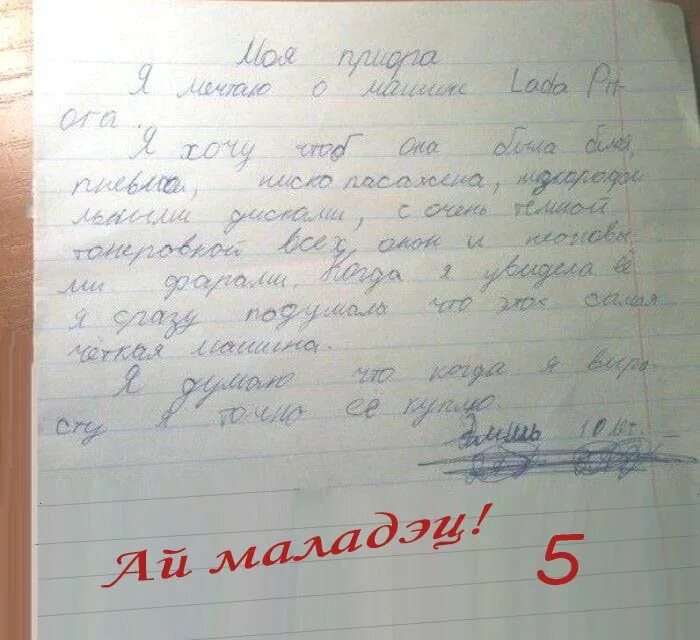 Моя приора
Я мечтаю о машине Lada Pri-
ora.
Я хочу чтоб она была белая,
пневма, ниско пасажена,
льными дисками, с очень тёмной
тонеровкой всех окон и неоновы-
ми фарами. Когда я увидела её
я сразу подумала что это самая
чёткая машина.
Я думаю что когда я выра-
сту я точно её куплю.
10 лет.
Ай маладэц! 5